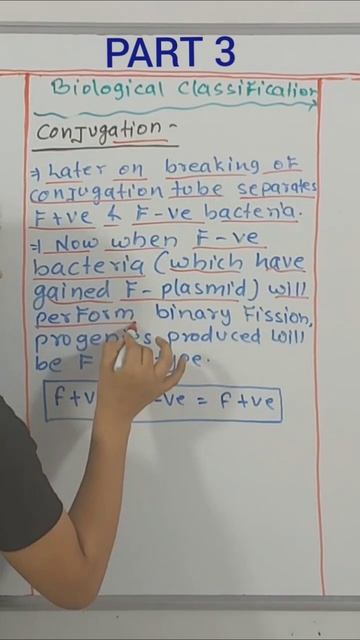 PART 3
Biological Classification
Conjugation -
⇒ Later on breaking of
conjugation tube separates
F+ve & F-ve bacteria.
⇒ Now when F-ve
bacteria (which have
gained F-plasmid) will
perform binary Fission,
progenies produced will
be F
F+v -ve = F+ve